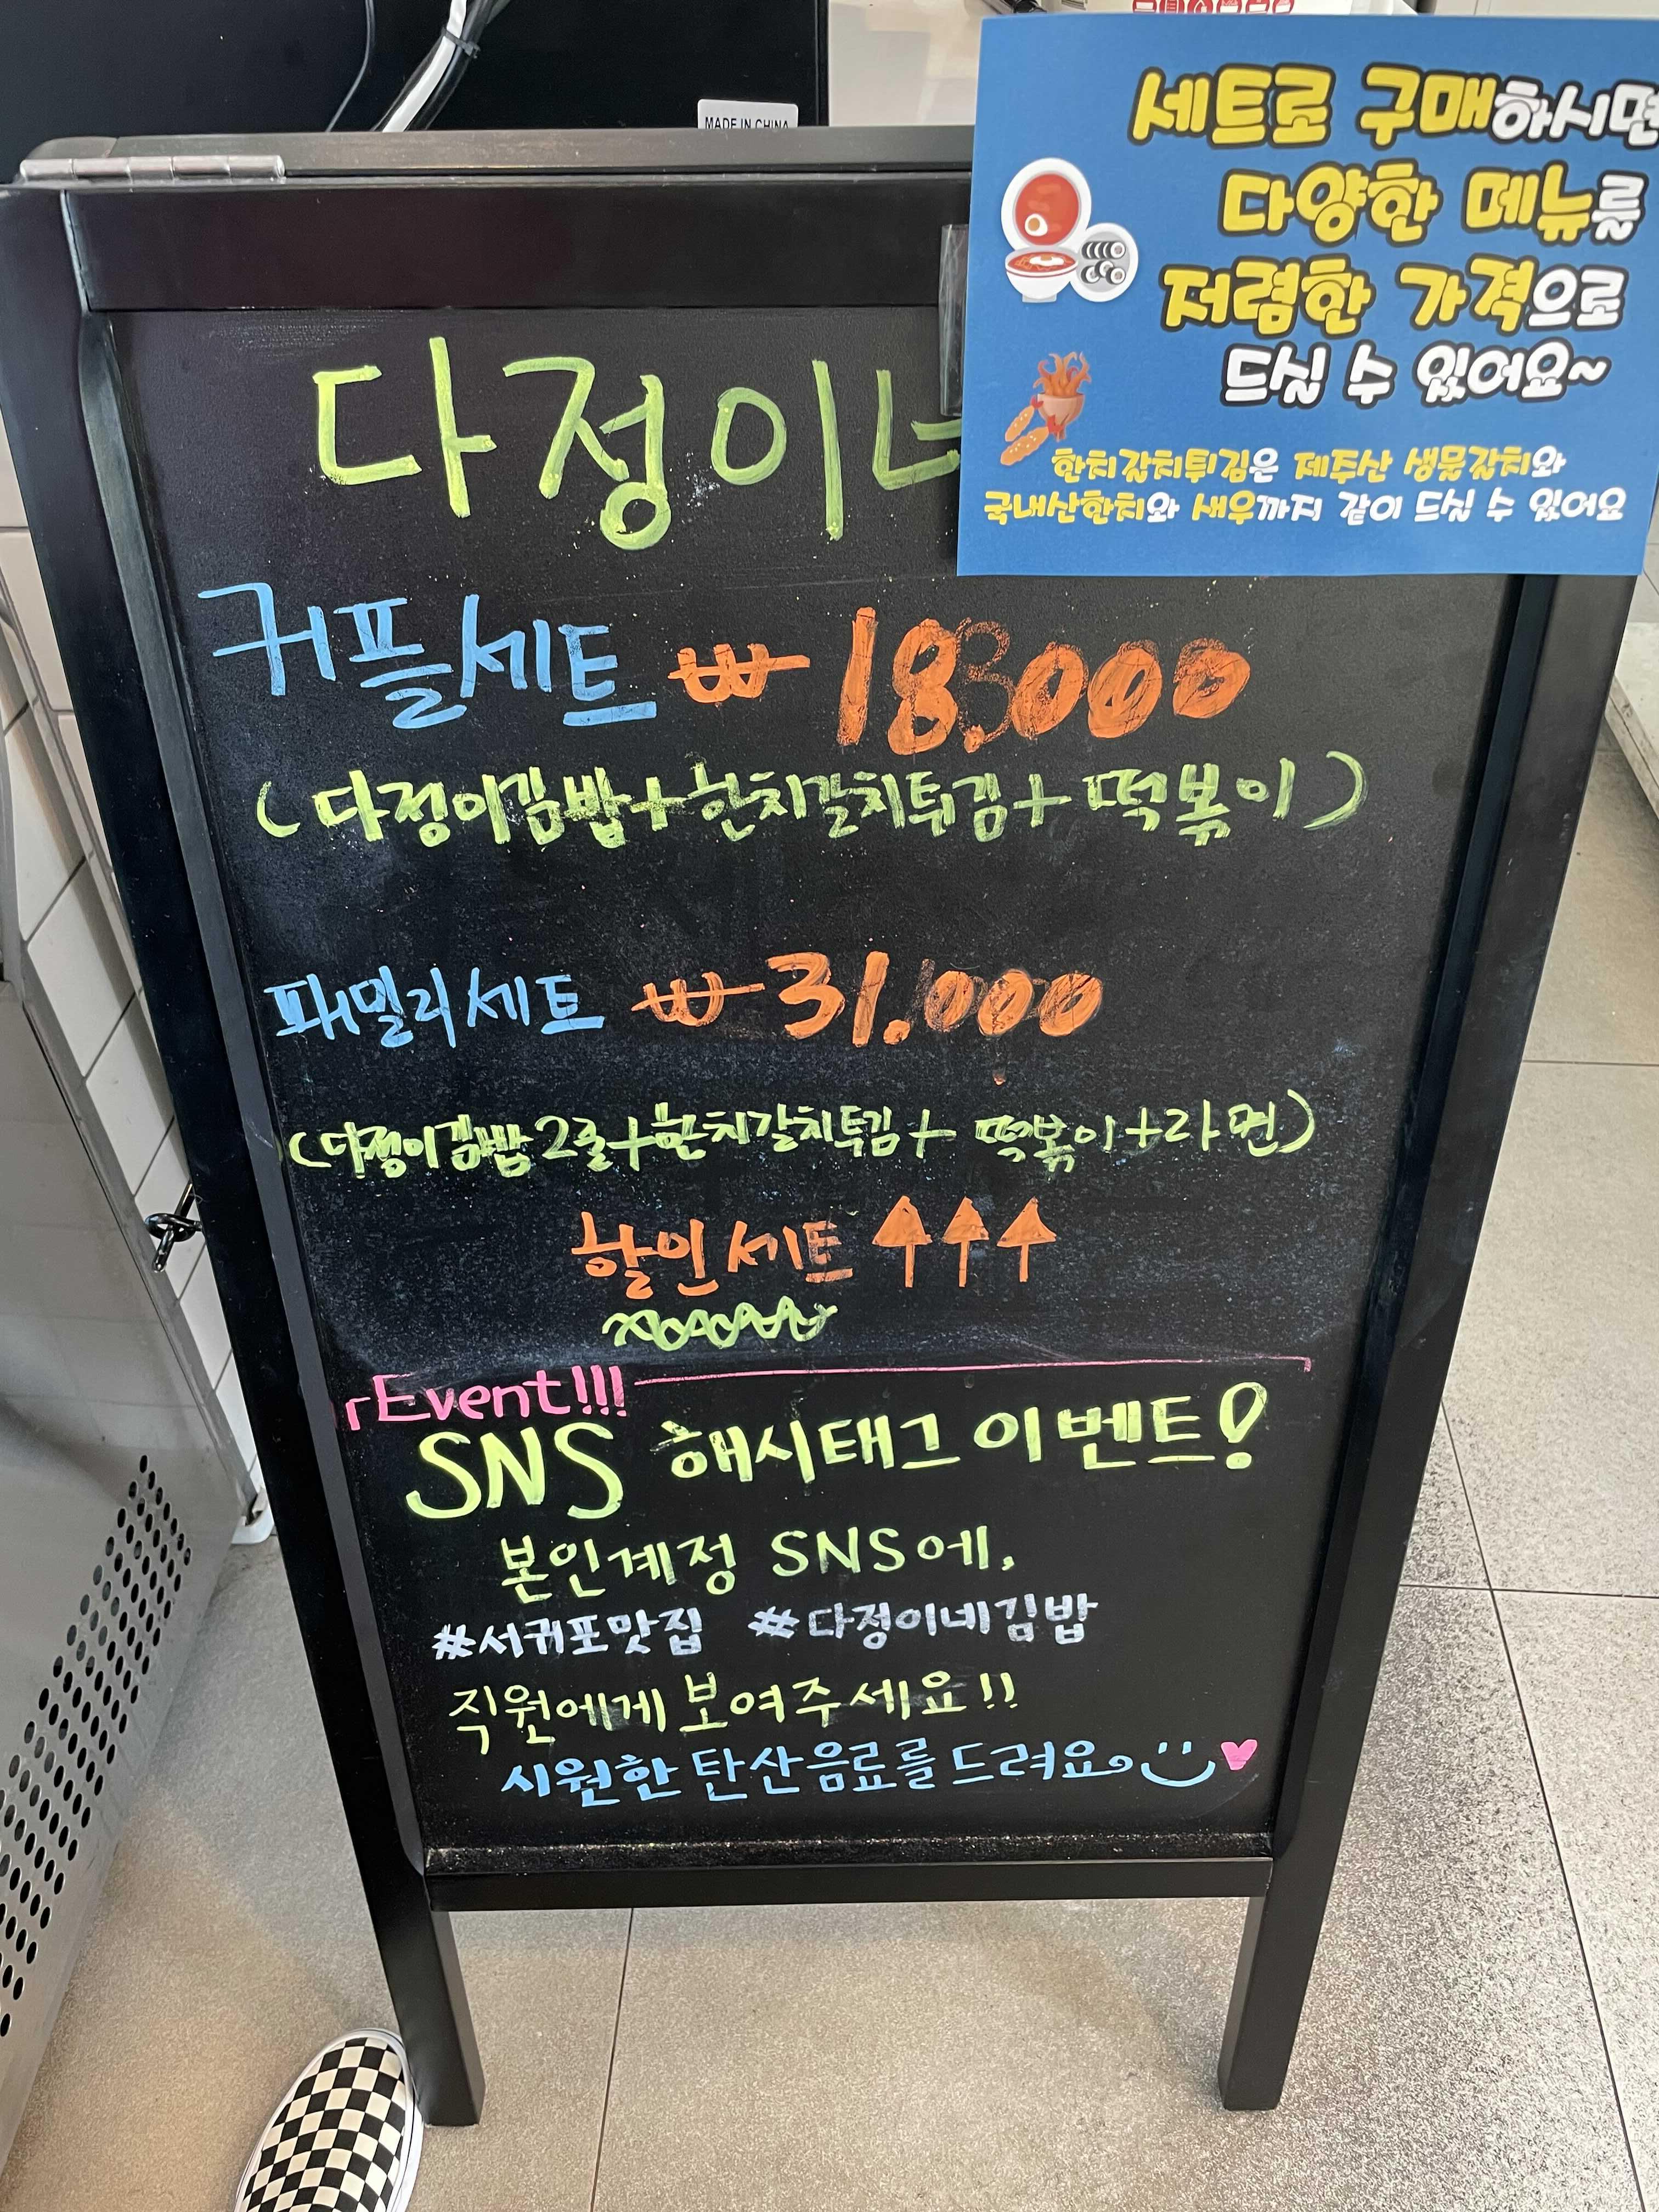 MADE IN CHINA
세트로 구매하시면
다양한 메뉴를
저렴한 가격으로
드실 수 있어요~
한치갈치튀김은 제주산 생물갈치와
국내산한치와 새우까지 같이 드실 수 있어요
다정이네
커플세트 ₩ 18.000
(다정이김밥+한치갈치튀김+떡볶이)
패밀리세트 ₩ 31.000
(다정이김밥2줄+한치갈치튀김+떡볶이+라면)
할인세트 ↑↑↑
Event!!!
SNS 해시태그 이벤트!
본인계정 SNS에,
#서귀포맛집 #다정이네김밥
직원에게 보여주세요!!
시원한 탄산음료를 드려요